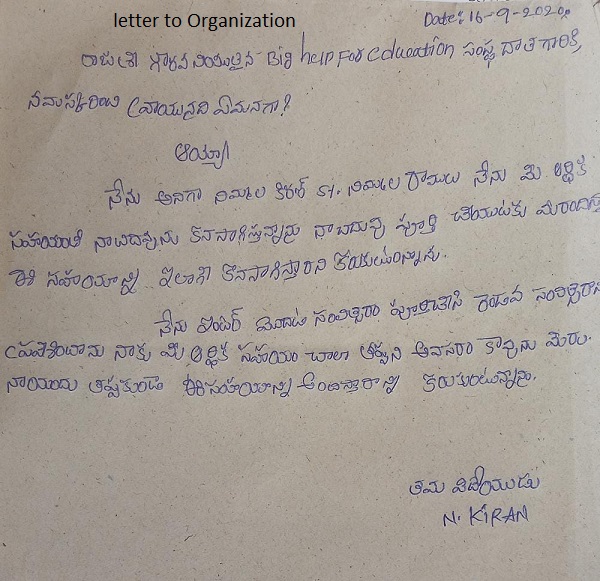 letter to Organization
Date: 16-9-2020.
రాజశ్రీ గౌరవనీయులైన Big help For education సంస్థ దాత గారికి,
నమస్కరించి వ్రాయునది ఏమనగా?
అయ్యా
నేను అనగా నిమ్మల కిరణ్ S/. నిమ్మల రాములు నేను మీ ఆర్థిక
సహయంతో నాచదువును కొనసాగిస్తున్నాను నా చదువు పూర్తి చేయుటకు మీరందిస్తు
ఈ సహయాన్ని ఇలాగే కొనసాగిస్తారని కోరుకుంటున్నాను.
నేను ఇంటర్ మొదటి సంవత్సరం పూర్తిచేసి రెండవ సంవత్సరాని
ప్రవేశించాను నాకు మీ ఆర్థిక సహయం చాలా అవసరం కావును మీరు
నాయందు తప్పకుండా ఈసహయాన్ని అందిస్తారాన్ని కోరుకుంటున్నాను.
తమ విధేయుడు
N. KIRAN